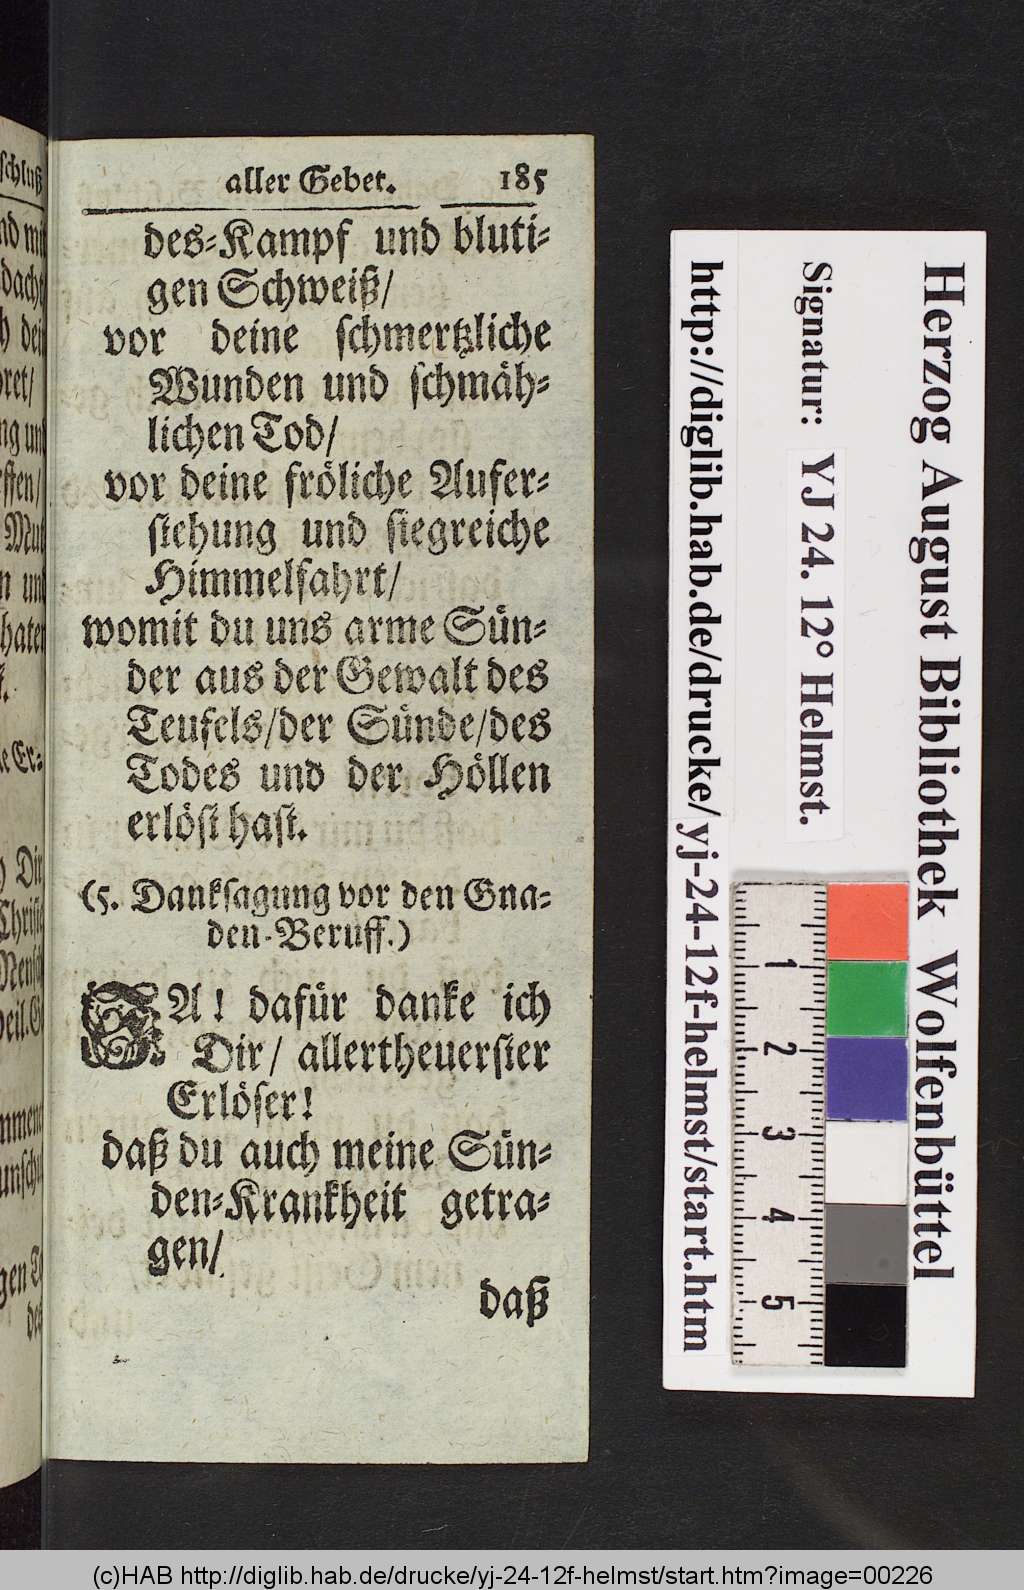 schluß
aller Gebet. 185
des-Kampf und bluti-
gen Schweiß/
vor deine schmertzliche
Wunden und schmäh-
lichen Tod/
vor deine fröliche Aufer-
stehung und siegreiche
Himmelfahrt/
womit du uns arme Sün-
der aus der Gewalt des
Teufels/der Sünde/des
Todes und der Höllen
erlöst hast.
(5. Danksagung vor den Gna-
den-Beruff.)
JA! dafür danke ich
Dir/ allertheuerster
Erlöser!
daß du auch meine Sün-
den-Krankheit getra-
gen/
daß
Herzog August Bibliothek Wolfenbüttel
Signatur: YJ 24. 12° Helmst.
http://diglib.hab.de/drucke/yj-24-12f-helmst/start.htm
1
2
3
4
5
(c)HAB http://diglib.hab.de/drucke/yj-24-12f-helmst/start.htm?image=00226